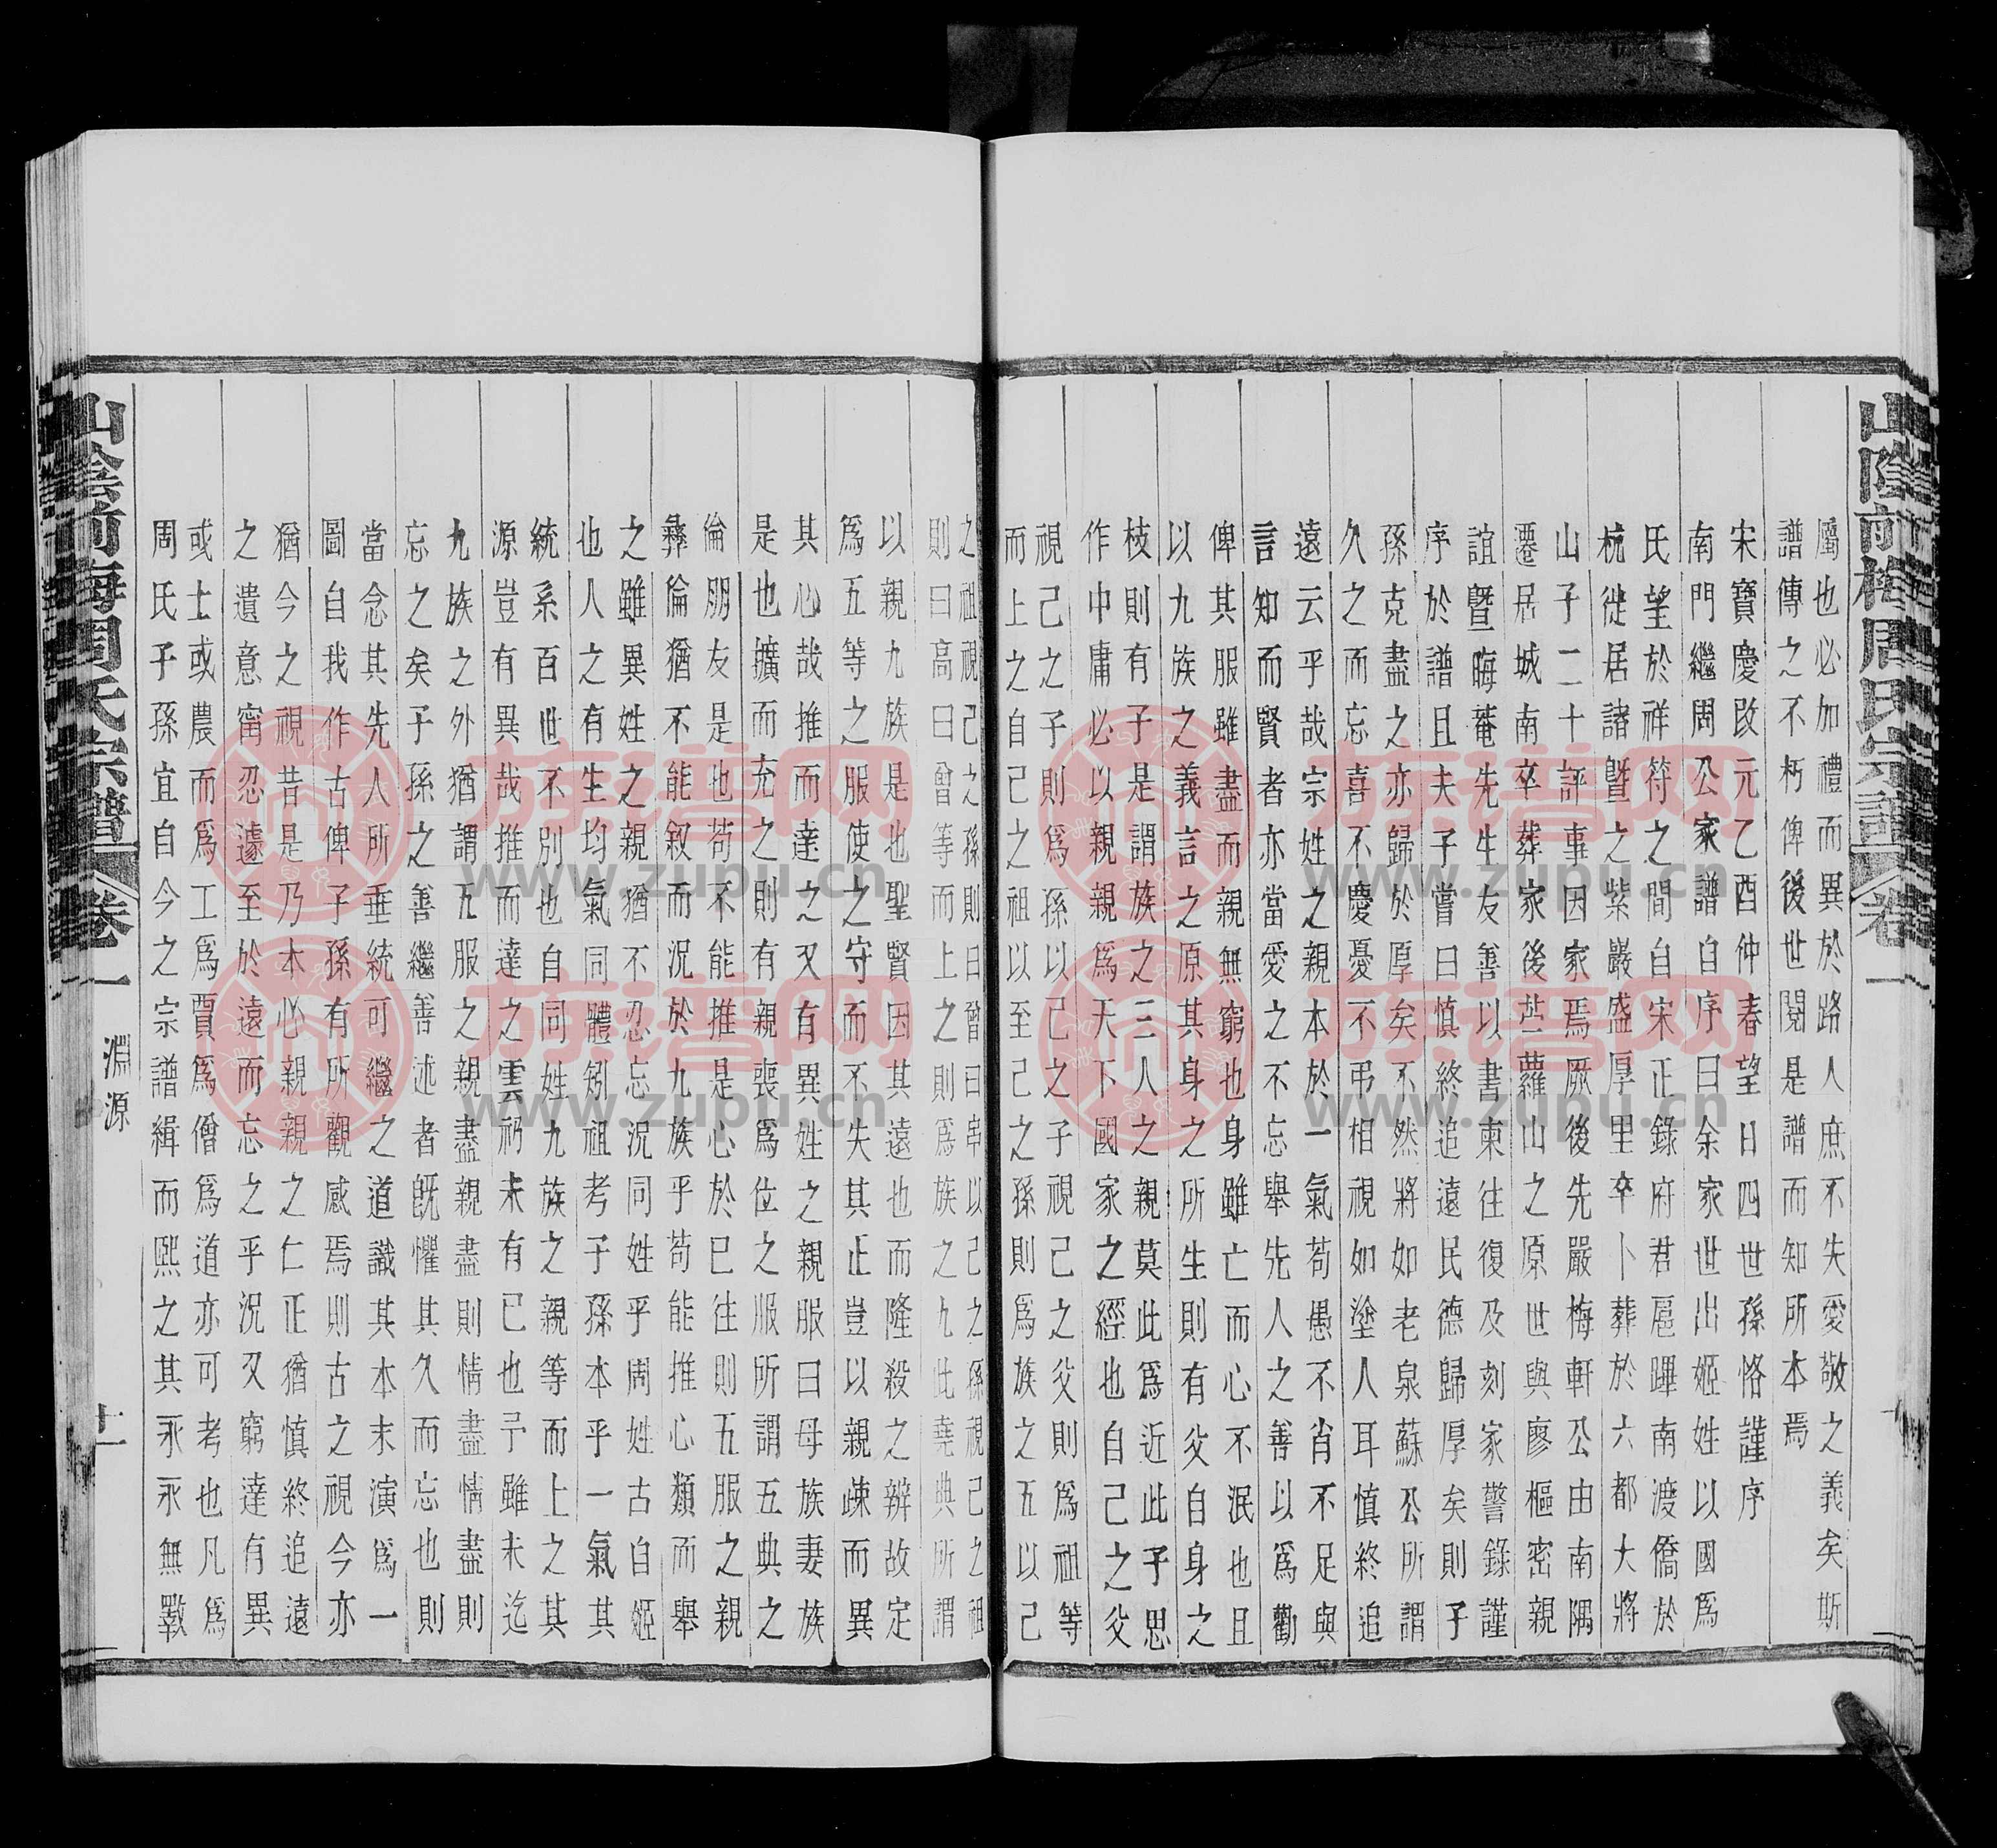 山陰前梅周氏宗譜
卷一
屬也必加禮而異於路人庶不失愛敬之義矣斯
譜傳之不朽俾後世閱是譜而知所本焉
宋寶慶改元乙酉仲春望日四世孫恪謹序
南門繼周公家譜自序曰余家世出姬姓以國爲
氏望於祥符之間自宋正錄府君扈蹕南渡僑於
杭徙居諸暨之紫巖盛厚里卒卜葬於六都大將
山子二十評事因家焉厥後先嚴梅軒公由南隅
遷居城南卒葬家後苎蘿山之原世與廖樞密親
誼暨晦菴先生友善以書柬往復及刻家警錄謹
序於譜且夫子嘗曰慎終追遠民德歸厚矣則子
孫克盡之亦歸於厚矣不然將如老泉蘇公所謂
久之而忘喜不慶憂不弔相視如塗人耳慎終追
遠云乎哉宗姓之親本於一氣苟愚不肖不足與
言知而賢者亦當愛之不忘舉先人之善以爲勸
俾其服雖盡而親無窮也身雖亡而心不泯也且
以九族之義言之原其身之所生則有父自身之
枝則有子是謂族之三人之親莫此爲近此子思
作中庸必以親親爲天下國家之經也自己之父
視己之子則爲孫以己之子視己之父則爲祖等
而上之自己之祖以至己之孫則爲族之五以己
之祖視己之孫則曰曾曰串以己之孫視己之祖
則曰高曰曾等而上之則爲族之九此堯典所謂
以親九族是也聖賢因其遠也而隆殺之辨故定
爲五等之服使之守而不失其正豈以親疎而異
其心哉推而達之又有異姓之親服曰母族妻族
是也擴而充之則有親喪爲位之服所謂五典之
倫朋友是也苟不能推是心於已往則五服之親
彝倫猶不能叙而況於九族乎苟能推心類而舉
之雖異姓之親猶不忍忘況同姓乎周姓古自姬
也人之有生均氣同體矧祖考子孫本乎一氣其
統系百世不別也自同姓九族之親等而上之其
源豈有異哉推而達之雲礽未有已也予雖未迄
九族之外猶謂五服之親盡親盡則情盡情盡則
忘之矣子孫之善繼善述者旣懼其久而忘也則
當念其先人所垂統可繼之道識其本末演爲一
圖自我作古俾子孫有所觀感焉則古之視今亦
猶今之視昔是乃本必親親之仁正猶慎終追遠
之遺意甯忍遽至於遠而忘之乎況又窮達有異
或士或農而爲工爲賈爲僧爲道亦可考也凡爲
周氏子孫宜自今之宗譜緝而熙之其永永無斁
山陰前梅周氏宗譜
卷一
淵源
十一
族谱网
www.zupu.cn
族谱网
www.zupu.cn
族谱网
www.zupu.cn
族谱网
www.zupu.cn